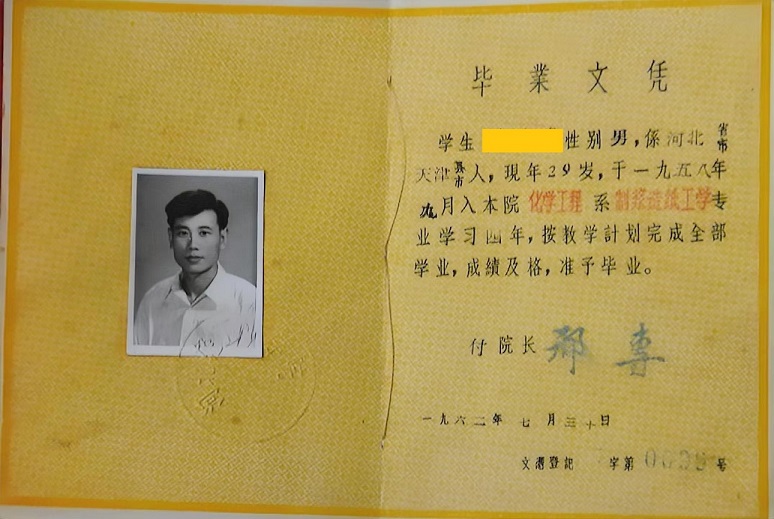 毕業文凭
学生 性别男，係河北省市
天津县市人，現年29岁，于一九五八年
九月入本院化学工程系制浆造纸工学专
业学习四年，按教学計划完成全部
学业，成績及格，准予毕业。
付院长
一九六二年七月三十日
文凭登記 字第 号